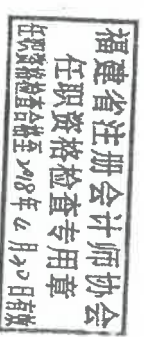 福建省注册会计师协会
任职资格检查专用章
任职资格检查合格至2018年6月20日有效